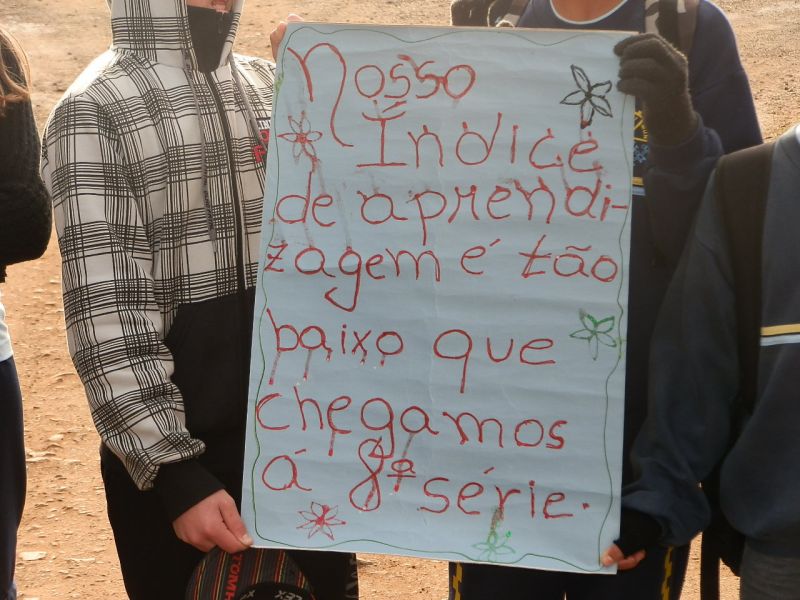 Nosso
Índice
de aprendi-
zagem é tão
baixo que
chegamos
á 8ª série.